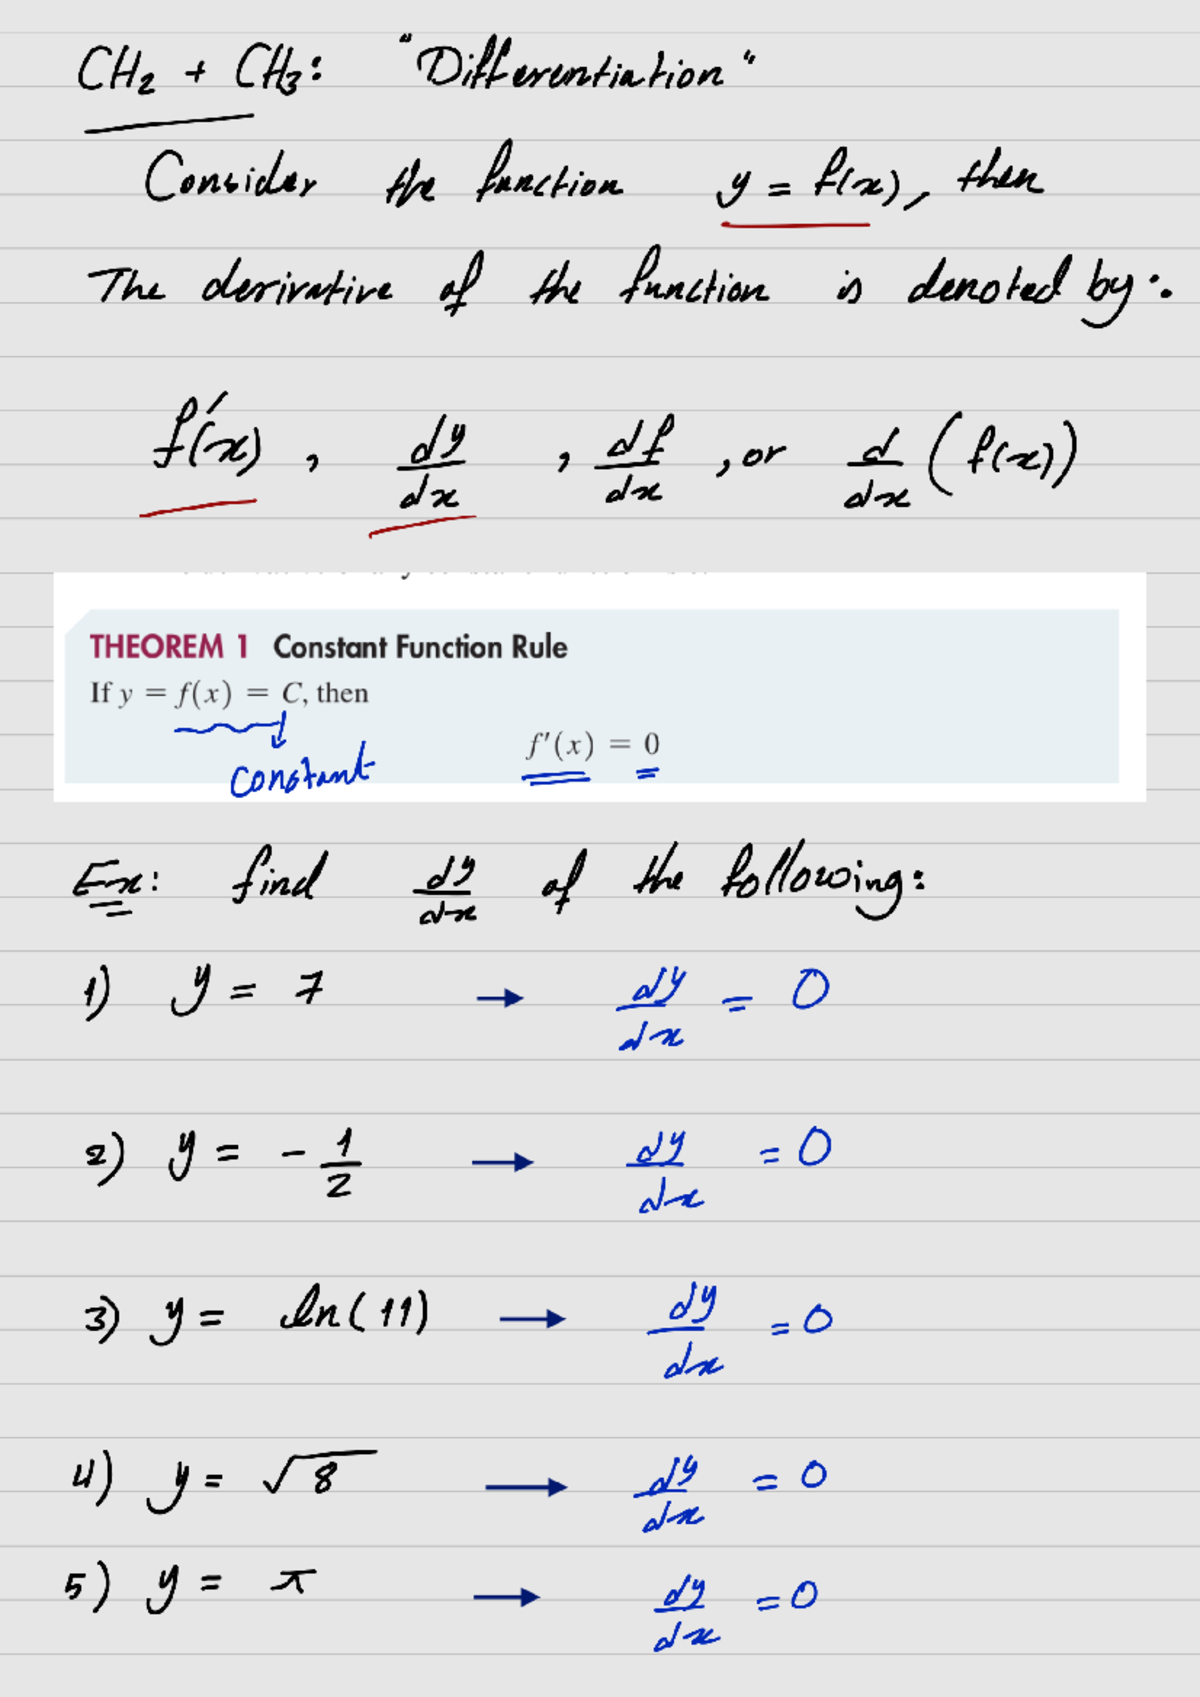 CH2 + CH3: "Differentiation"
Consider the function y = f(x), then
The derivative of the function is denoted by:
f'(x), dy/dx, df/dx, or d/dx (f(x))
THEOREM 1 Constant Function Rule
If y = f(x) = C, then
constant
f'(x) = 0
Ex: find dy/dx of the following:
1) y = 7 → dy/dx = 0
2) y = - 1/2 → dy/dx = 0
3) y = ln(11) → dy/dx = 0
4) y = √8 → dy/dx = 0
5) y = π → dy/dx = 0